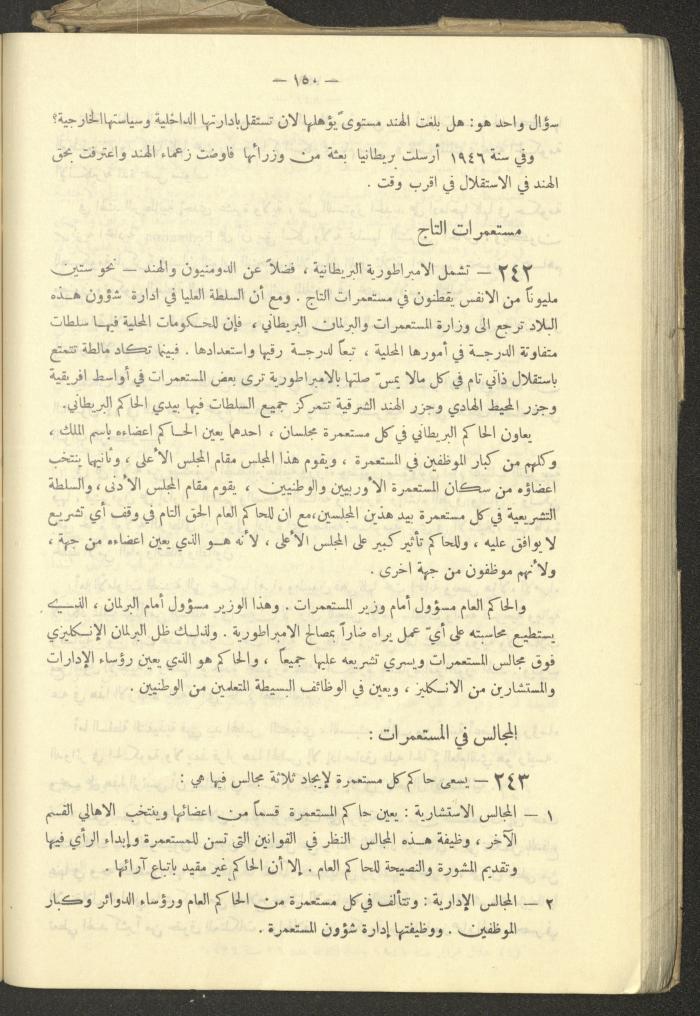 — ١٥٠ —
سؤال واحد هو: هل بلغت الهند مستوىً يؤهلها لان تستقل بادارتها الداخلية وسياستها الخارجية؟
وفي سنة ١٩٤٦ أرسلت بريطانيا بعثة من وزرائها فاوضت زعماء الهند واعترفت بحق
الهند في الاستقلال في اقرب وقت .
مستعمرات التاج
٢٤٢ — تشمل الامبراطورية البريطانية ، فضلاً عن الدومنيون والهند — نحو ستين
مليوناً من الانفس يقطنون في مستعمرات التاج . ومع أن السلطة العليا في ادارة شؤون هذه
البلاد ترجع الى وزارة المستعمرات والبرلمان البريطاني ، فإن للحكومات المحلية فيها سلطات
متفاوتة الدرجة في أمورها المحلية ، تبعاً لدرجة رقيها واستعدادها . فبينما تكاد مالطة تتمتع
باستقلال ذاتي تام في كل مالا يمسّ صلتها بالامبراطورية ترى بعض المستعمرات في أواسط افريقية
وجزر المحيط الهادي وجزر الهند الشرقية تتمركز جميع السلطات فيها بيدي الحاكم البريطاني.
يعاون الحاكم البريطاني في كل مستعمرة مجلسان ، احدهما يعين الحاكم اعضاءه باسم الملك ،
وكلهم من كبار الموظفين في المستعمرة ، ويقوم هذا المجلس مقام المجلس الأعلى ، وثانيها ينتخب
اعضاؤه من سكان المستعمرة الأوربيين والوطنيين ، يقوم مقام المجلس الأدنى ، والسلطة
التشريعية في كل مستعمرة بيد هذين المجلسين،مع ان للحاكم العام الحق التام في وقف أي تشريع
لا يوافق عليه ، وللحاكم تأثير كبير على المجلس الأعلى ، لأنه هو الذي يعين اعضاءه من جهة ،
ولأنهم موظفون من جهة اخرى .
والحاكم العام مسؤول أمام وزير المستعمرات . وهذا الوزير مسؤول أمام البرلمان ، الذي
يستطيع محاسبته على أيّ عمل يراه ضاراً بمصالح الامبراطورية . ولذلك ظل البرلمان الإنكليزي
فوق مجالس المستعمرات ويسري تشريعه عليها جميعاً ، والحاكم هو الذي يعين رؤساء الإدارات
والمستشارين من الانكليز ، ويعين في الوظائف البسيطة المتعلمين من الوطنيين .
المجالس في المستعمرات :
٢٤٣ — يسعى حاكم كل مستعمرة لإيجاد ثلاثة مجالس فيها هي :
١ — المجالس الاستشارية : يعين حاكم المستعمرة قسماً من اعضائها وينتخب الاهالي القسم
الآخر ، وظيفة هذه المجالس النظر في القوانين التي تسن للمستعمرة وإبداء الرأي فيها
وتقديم المشورة والنصيحة للحاكم العام . إلا أن الحاكم غير مقيد باتباع آرائها .
٢ — المجالس الإدارية : وتتألف في كل مستعمرة من الحاكم العام ورؤساء الدوائر وكبار
الموظفين . ووظيفتها إدارة شؤون المستعمرة .